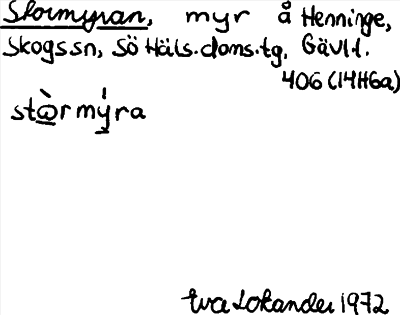 Stormyran, myr å Henninge,
Skogs sn, Sö Häls. doms. tg, Gävl. l.
406 (14H6a)
stὼr mýra
Eva Lokander 1972